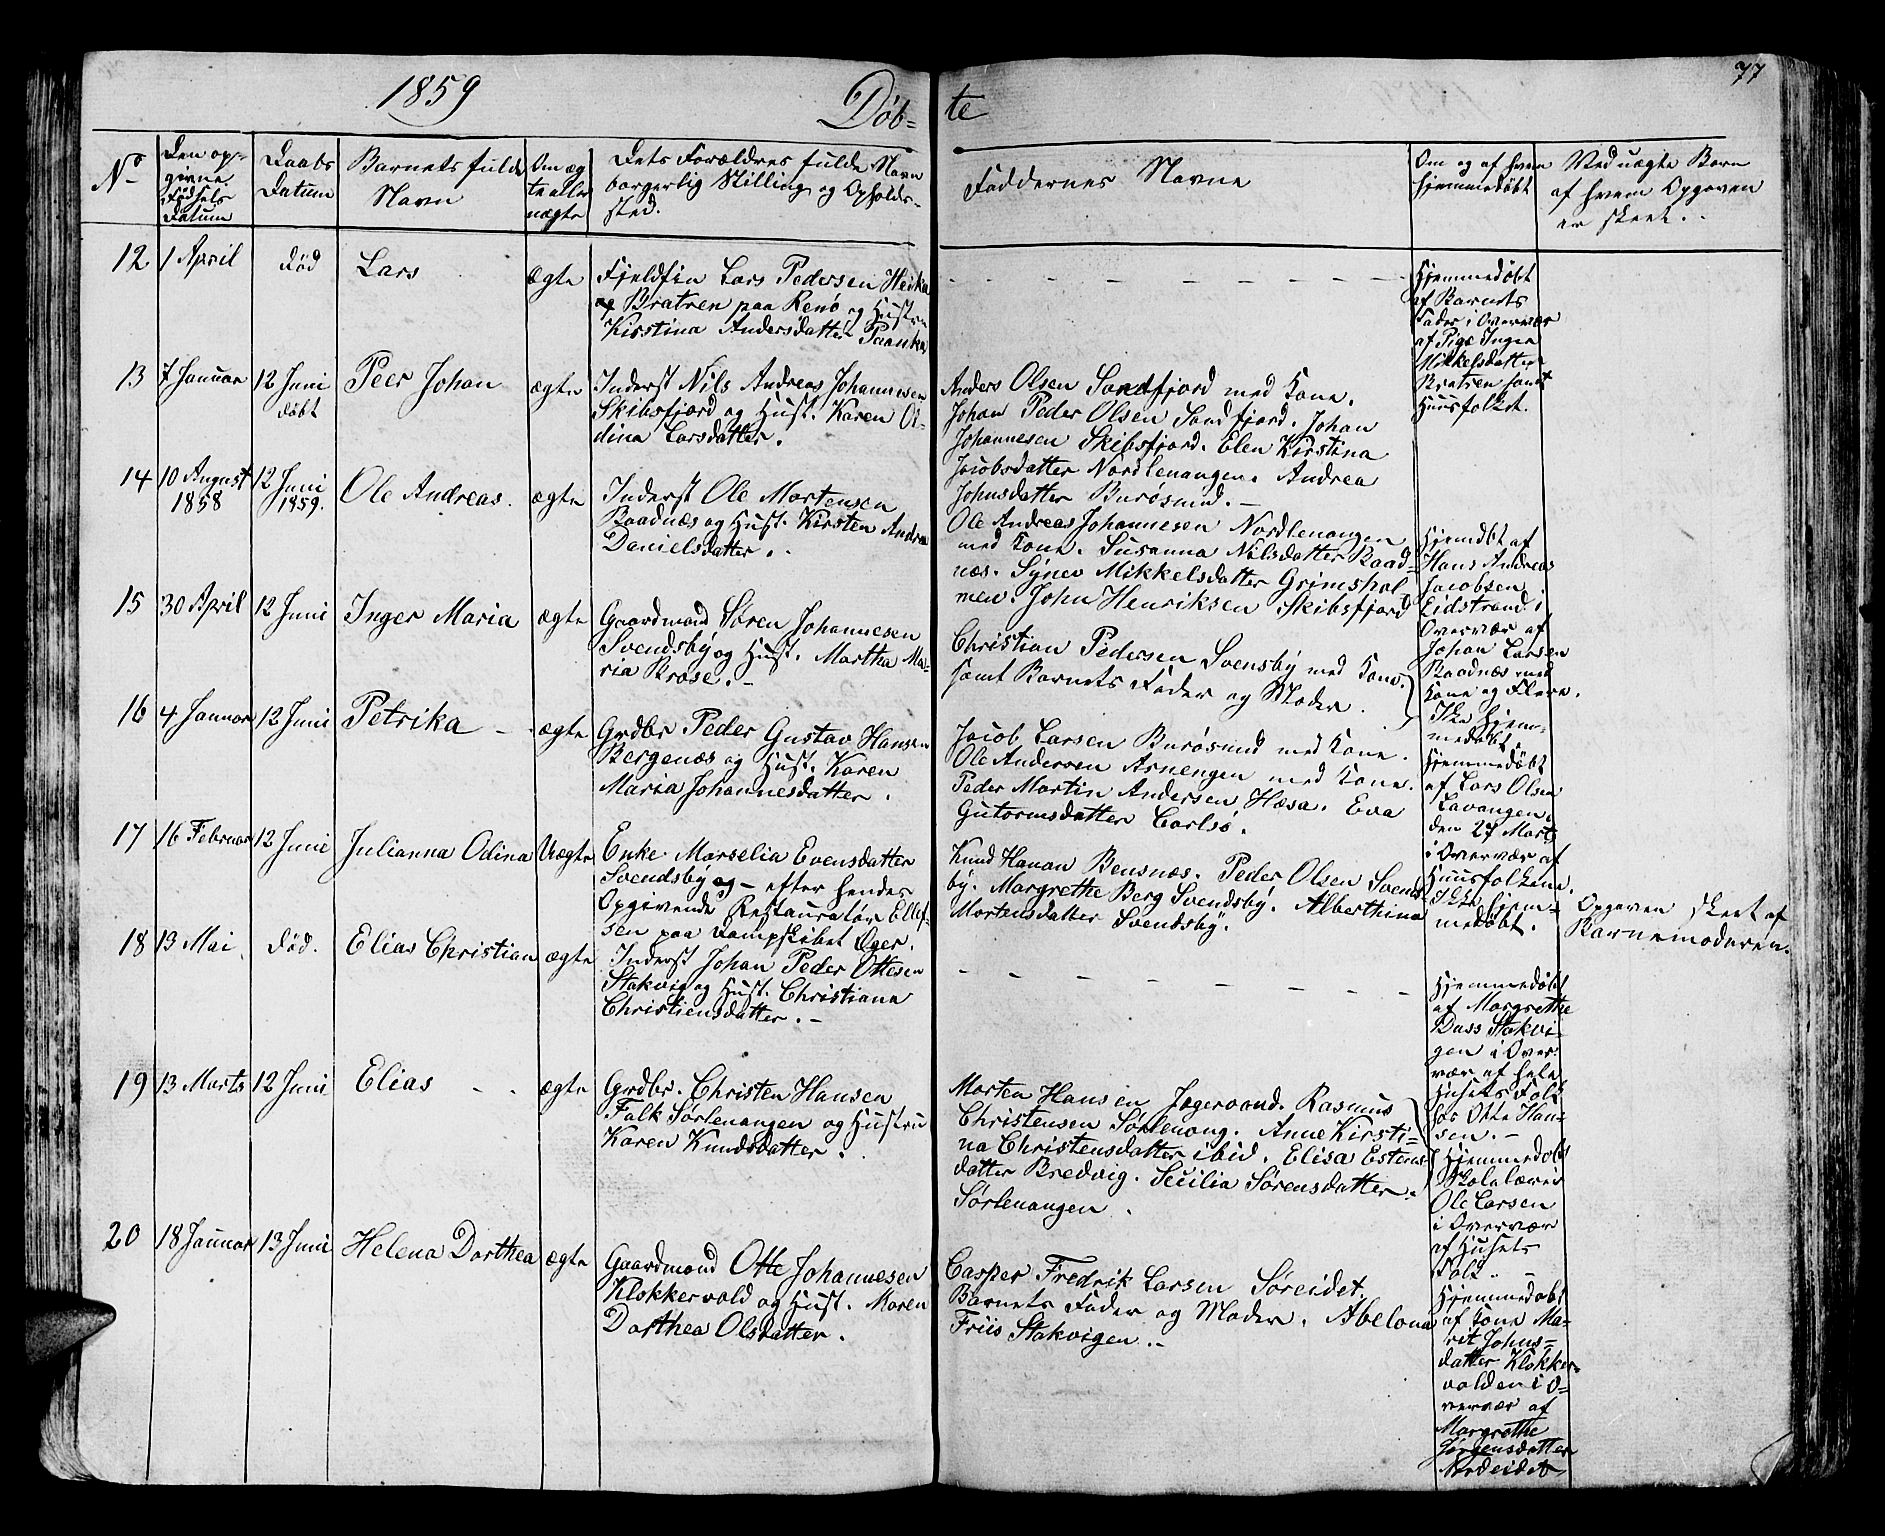 1859
Døb=
te
77
No
Den op=
givne
Fødsels
Datum
Daabs
Datum
Barnets fulde
Navn
Om æg
te eller
uægte
Dets Forældres fulde Navn
borgerlig Stilling og Opholds=
sted.
Faddernes Navne
Om og af hvem
hjemmedøbt
Ved uægte Barn
af hvem Opgaven
er skeet.
12
1 April
død
Lars
ægte
Fjeldfin Lars Pedersen Heika
Bratren paa Renø og Hustru
Kirstina Andersdatter Paanka
Hjemmedøbt
af Barnets
Fader i Overvær
af Pige Inger
Mikkelsdatter
Bratren samt
Huusfolket.
13
7 Januar
12 Juni
døbt
Peer Johan
ægte
Inderst Nils Andreas Johannesen
Skibsfjord og Hust. Karen Ol=
dina Larsdatter.
Anders Olsen Sandfjord med Kone.
Johan Peder Olsen Sandfjord. Johan
Johannesen Skibsfjord. Elen Kirstina
Jacobsdatter Nordlenangen. Andrea
Johnsdatter Burøsund.
14
10 August
1858
12 Juni
1859.
Ole Andreas.
ægte
Inderst Ole Mortensen
Baadnæs og Hust. Kirsten Andrea
Danielsdatter.
Ole Andreas Johannesen Nordlenangen
med Kone. Susanna Nilsdatter Baad=
næs. Synev Mikkelsdatter Grimshol=
men. John Henriksen Skibsfjord
Hjemdøbt af
Hans Andreas
Jacobsen
Eidstrand i
Overvær af
Johan Larsen
Baadnæs med
Kone og Flere.
15
30 April
12 Juni
Inger Maria
ægte
Gaardmand Søren Johannesen
Svendsby og Hust. Martha Ma=
ria Brose.
Christian Pedersen Svensby med Kone.
samt Barnets Fader og Moder.
Ikke hjem=
medøbt.
16
4 Januar
12 Juni
Petrika
ægte
Grdbr Peder Gustav Hansen
Bergenæs og Hust. Karen
Maria Johannesdatter.
Jacob Larsen Burøsund med Kone.
Ole Andersen Arnengen med Kone.
Peder Martin Andersen Hæsa. Eva
Gutormsdatter Carlsø.
Hjemmedøbt
af Lars Olsen
Lavangen,
den 27 Marts
i Overvær af
Huusfolkene.
17
16 Februar
12 Juni
Julianna Odina
Uægte
Enke Marselia Evensdatter
Svendsby og – efter hendes
Opgivende Restauratør Ellef=
sen paa Dampskibet Æger.
Knud Hanan Bensnæs. Peder Olsen Svends=
by. Margrethe Berg Svendsby. Alberthina
Mortensdatter Svendsby.
Ikke hjem=
medøbt.
Opgaven skeet af
Barnemoderen.
18
13 Mai.
død.
Elias Christian
ægte
Inderst Johan Peder Ottesen
Stakvig og Hust. Christiana
Christiensdatter.
Hjemmedøbt
af Margrethe
Dass Stakvi=
gen i Over=
vær af hele
Husets Folk
hos Otte Han=
sen.
19
13 Marts
12 Juni
Elias
ægte
Grdbr. Christen Hansen
Falk Sørlenangen og Hustru
Karen Knudsdatter.
Morten Hansen Jægervand. Rasmus
Christensen Sørlenang. Anne Kirsti=
na Christensdatter ibid. Elisa Estens=
datter Bredvig. Secilia Sørensdatter
Sørlenangen.
Hjemmedøbt
Skolelærer
Ole Larsen
i Overvær
af Husets
Folk.
20
18 Januar
13 Juni
Helena Dorthea
ægte
Gaardmand Otte Johannesen
Klokkervold og Hust. Maren
Dorthea Olsdatter.
Casper Fredrik Larsen Søreidet.
Barnets Fader og Moder. Abelona
Friis Stakvigen.
Hjemmedøbt
af Kone Ma=
rit Johns=
datter Klokker=
volden i O=
vervær af
Margrethe
Jørgensdatter
Nordeidet